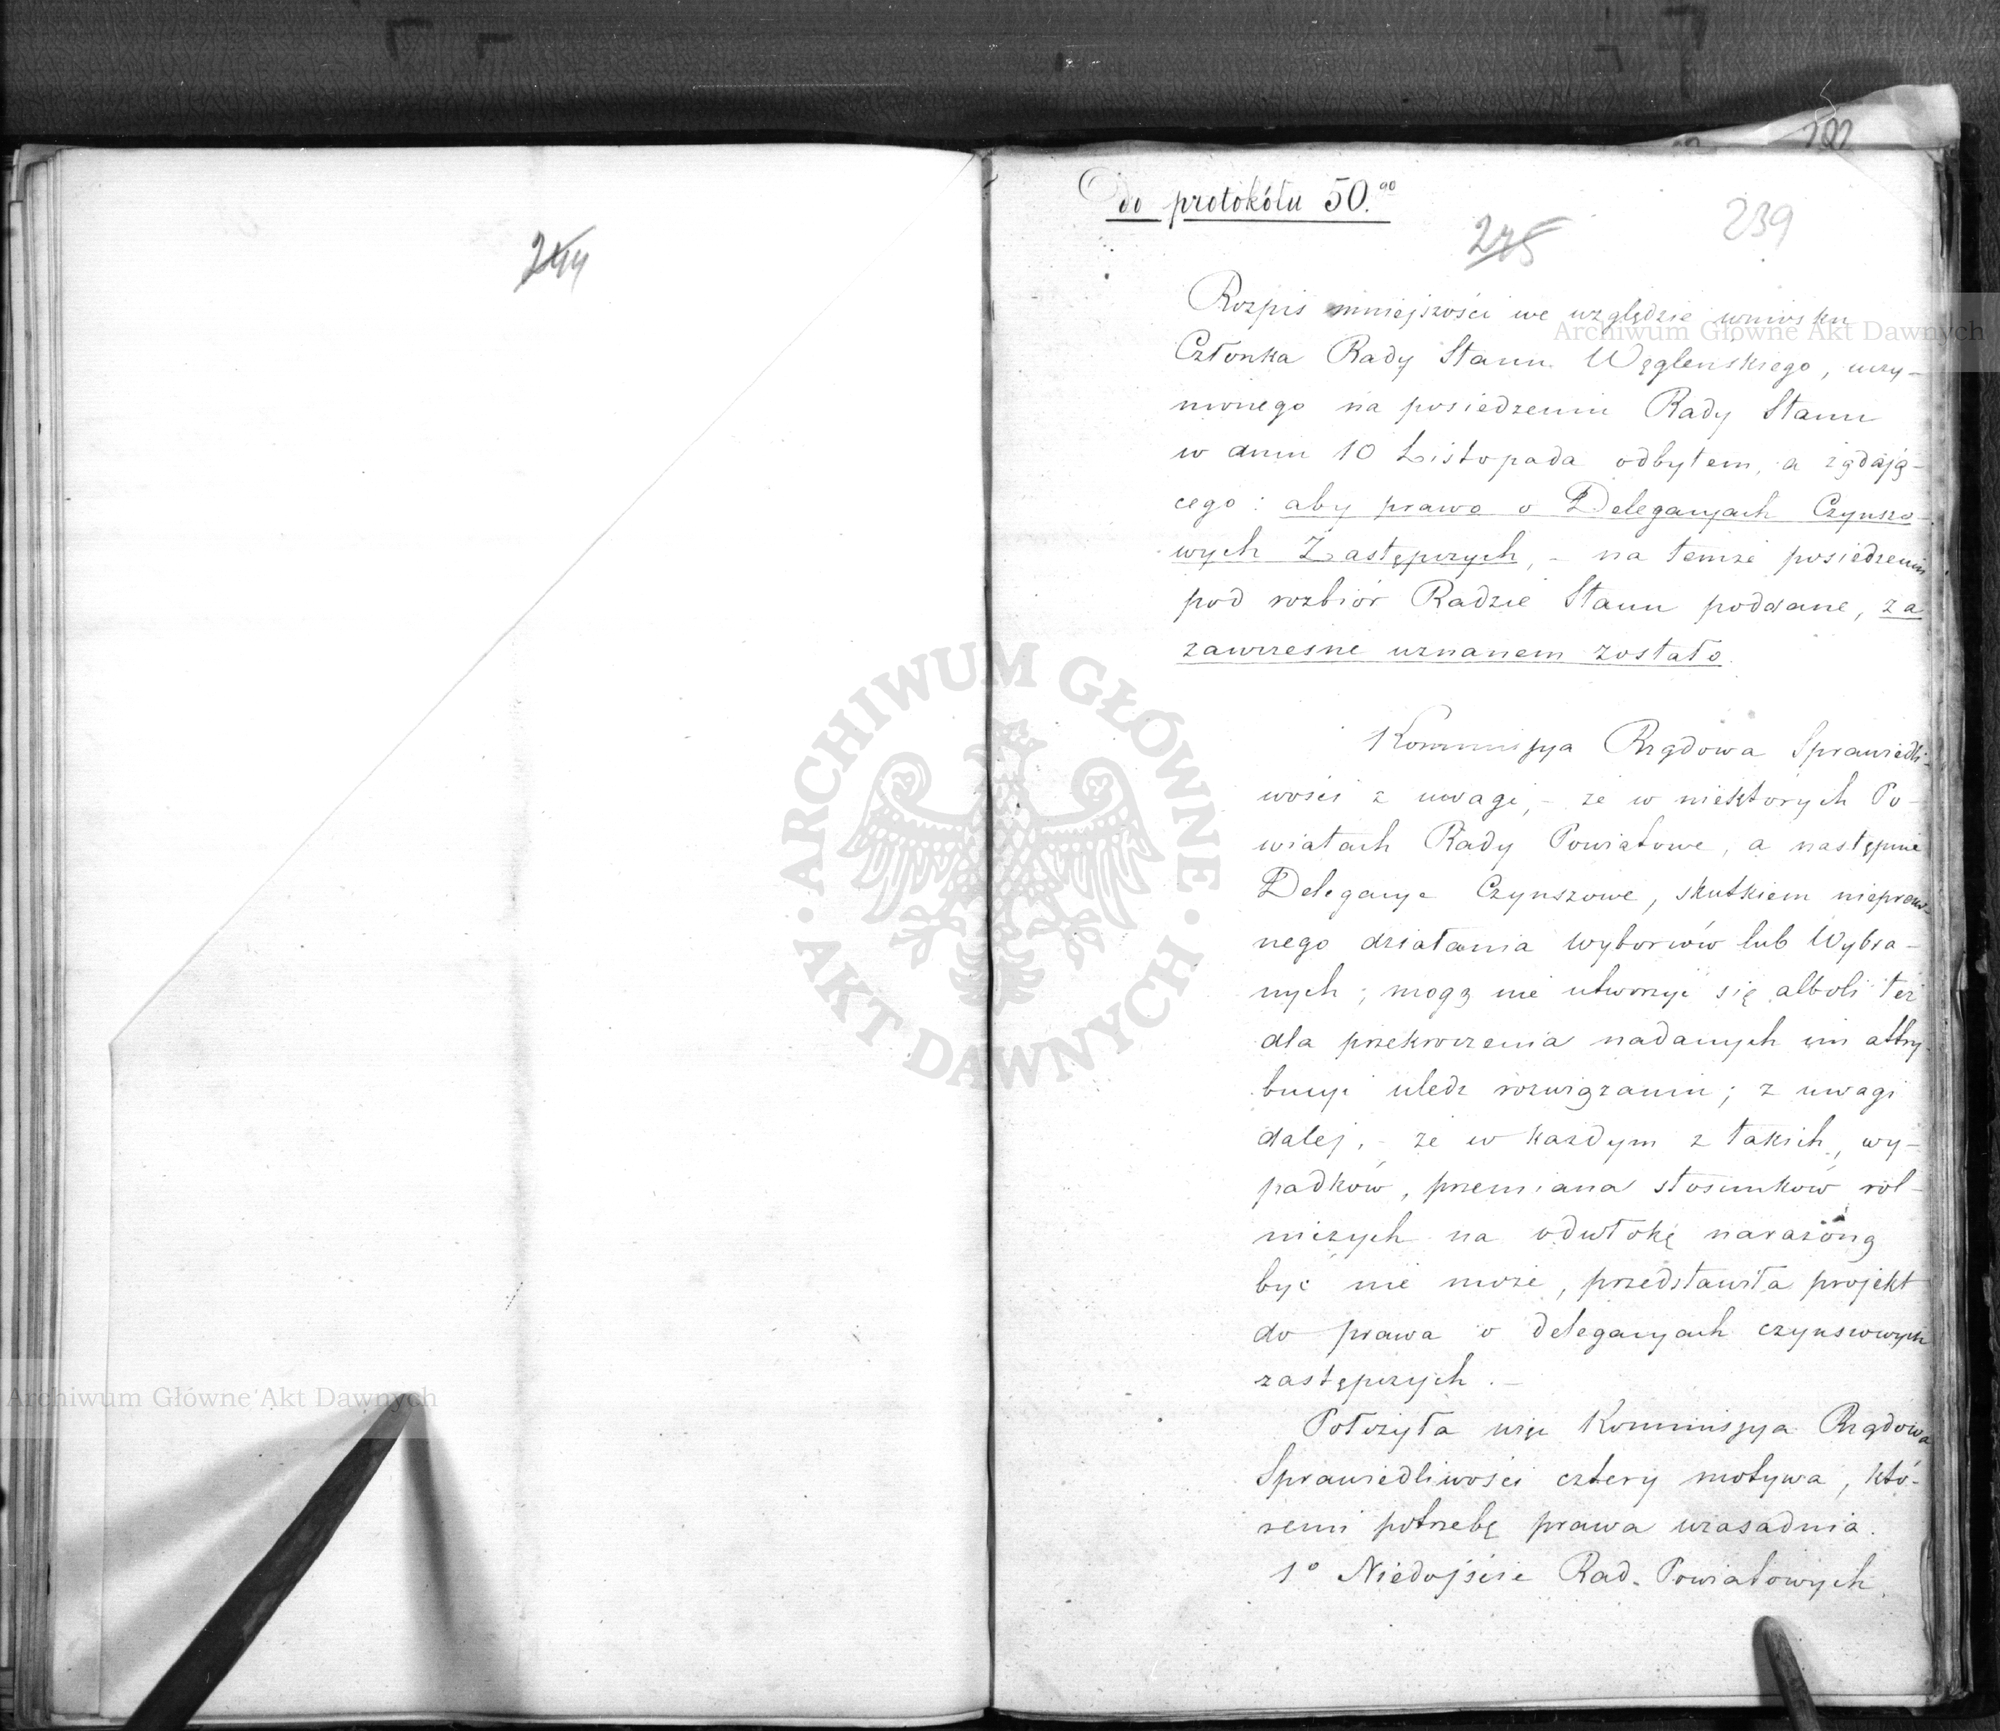 244
192
Do protokółu 50.go
245
239
Rozpis mniejszości we względzie wniosku
Członka Rady Stanu Węgleńskiego, uczy-
nionego na posiedzeniu Rady Stanu
w dniu 10 Listopada odbytem, a żądają-
cego: aby prawo o Delegacyach Czynszo-
wych Zastępczych, - na temże posiedzeniu
pod rozbiór Radzie Stanu poddane, za
zawczesne uznanem zostało.
Kommissya Rządowa Sprawiedli-
wości z uwagi, - że w niektórych Po-
wiatach Rady Powiatowe, a następnie
Delegacye Czynszowe, skutkiem niepraw-
nego działania wyborców lub Wybra-
nych; mogą nie utworzyć się alboli też
dla przekroczenia nadanych im attry-
bucyi uledz rozwiązaniu; z uwagi
dalej, - że w każdym z takich, wy-
padków, przemiana stosunków rol-
niczych na odwłokę narażoną
być nie może, przedstawiła projekt
do prawa o delegacyach czynszowych
zastępczych. -
Położyła więc Kommissya Rządowa
Sprawiedliwości cztery motywa, któ-
remi potrzebę prawa uzasadnia.
1° Niedojście Rad Powiatowych.
Archiwum Główne Akt Dawnych
Archiwum Główne Akt Dawnych
ARCHIWUM GŁÓWNE · AKT DAWNYCH ·